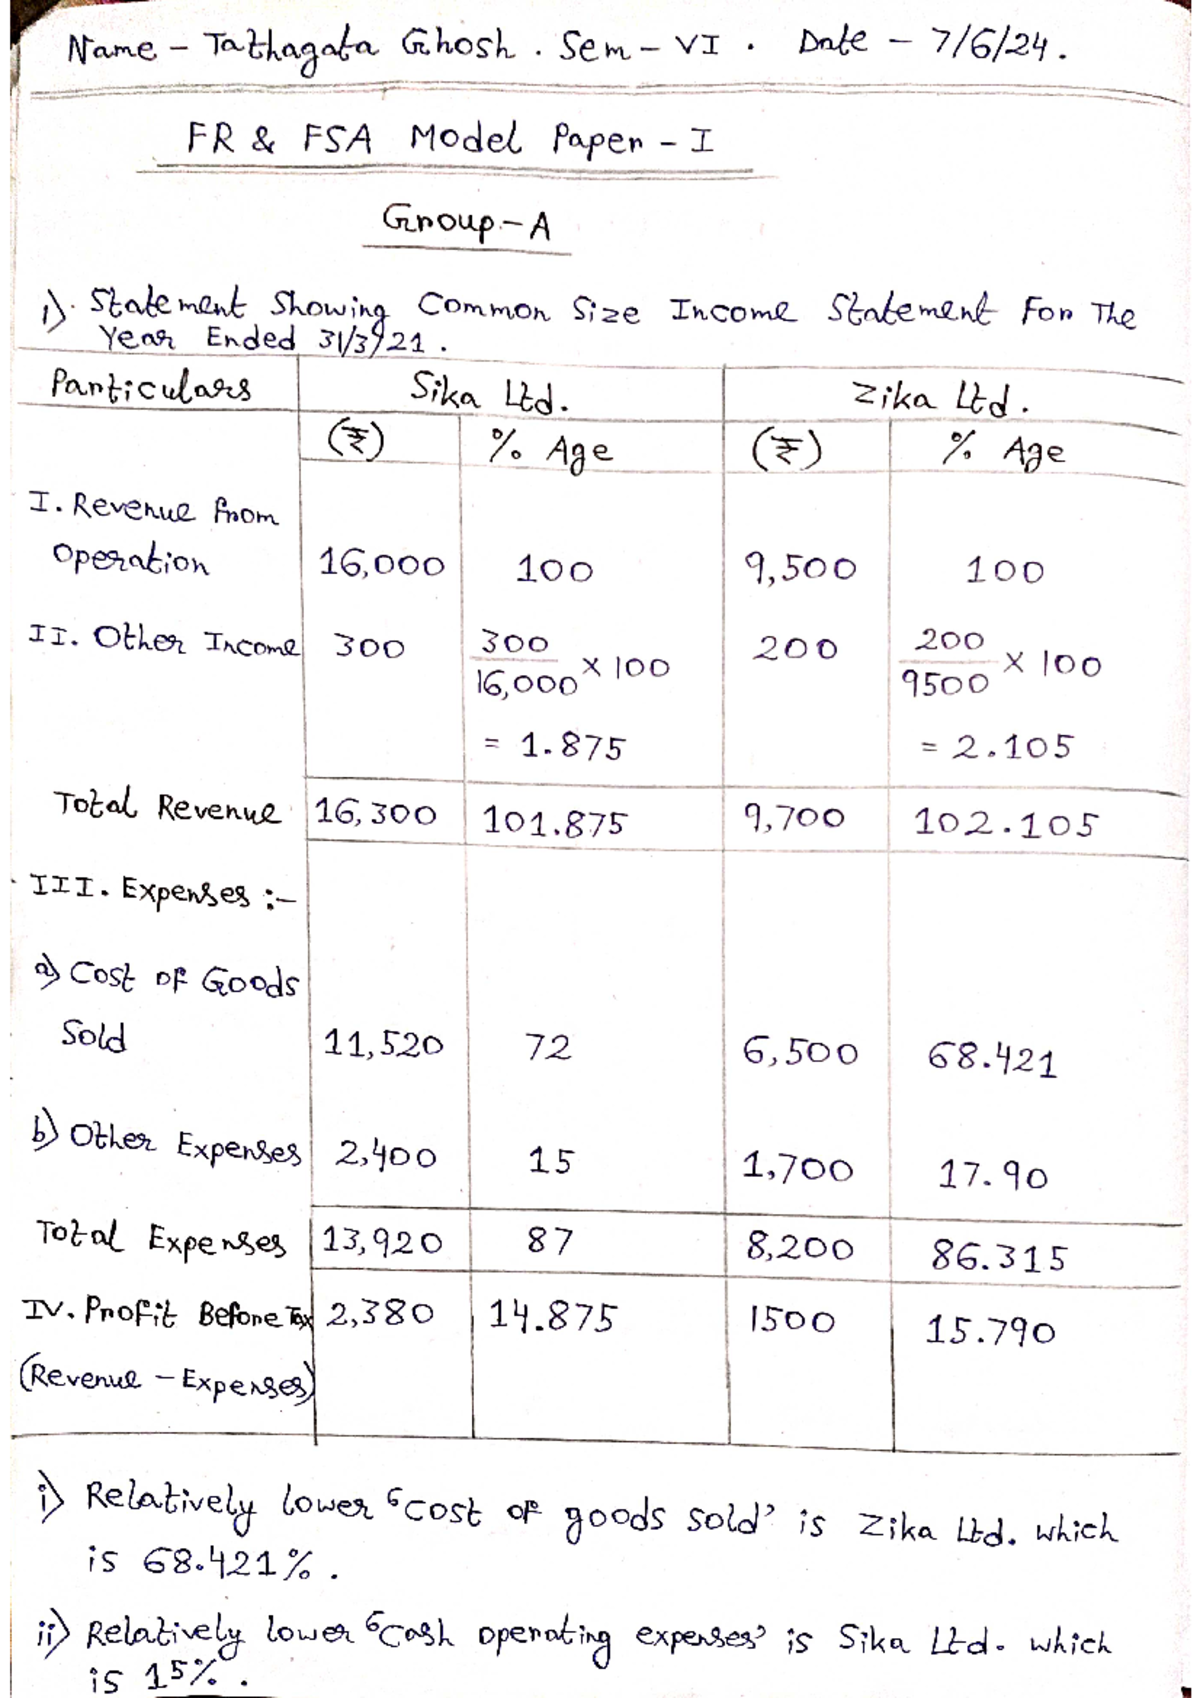 Name - Tathagata Ghosh. Sem - VI. Date - 7/6/24.
FR & FSA Model Paper - I
Group - A
1). Statement Showing Common Size Income Statement For The
Year Ended 31/3/21.
Particulars Sika Ltd. Zika Ltd.
(₹) % Age (₹) % Age
I. Revenue from
Operation 16,000 100 9,500 100
II. Other Income 300 300/16,000 × 100 200 200/9500 × 100
= 1.875 = 2.105
Total Revenue 16,300 101.875 9,700 102.105
III. Expenses :-
a) Cost of Goods
Sold 11,520 72 6,500 68.421
b) Other Expenses 2,400 15 1,700 17.90
Total Expenses 13,920 87 8,200 86.315
IV. Profit Before Tax 2,380 14.875 1500 15.790
(Revenue - Expenses)
i) Relatively lower 'cost of goods sold' is Zika Ltd. which
is 68.421%.
ii) Relatively lower 'cash operating expenses' is Sika Ltd. which
is 15%.